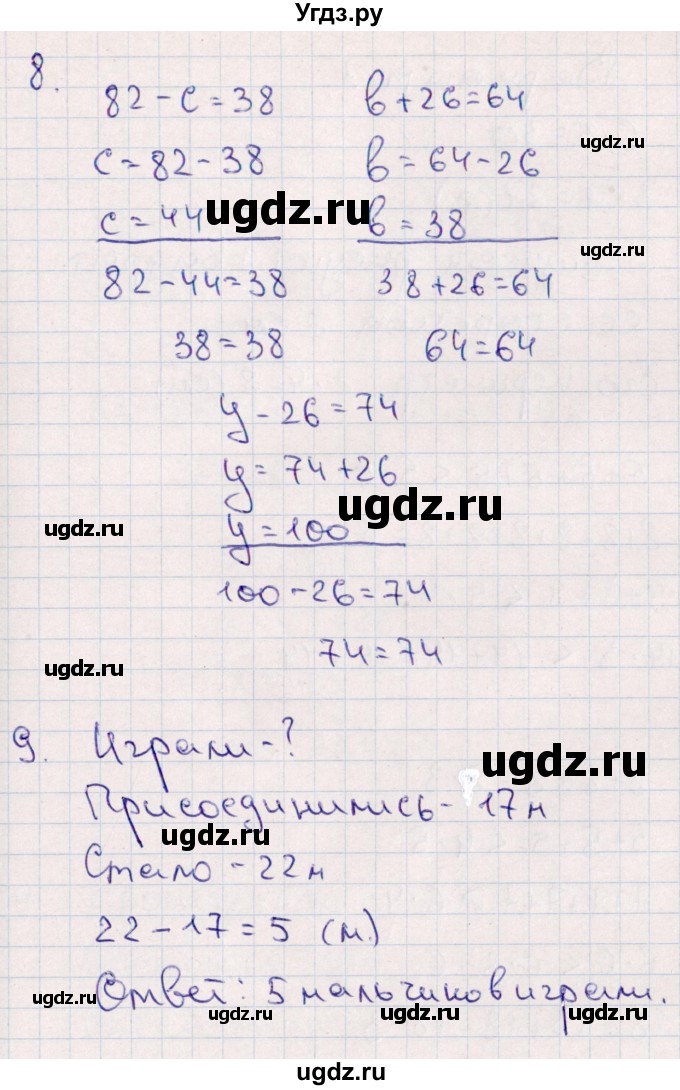 Угдз.ру
8.
82 - c = 38
c = 82 - 38
c = 44
82 - 44 = 38
38 = 38
в + 26 = 64
в = 64 - 26
в = 38
38 + 26 = 64
64 = 64
y - 26 = 74
y = 74 + 26
y = 100
100 - 26 = 74
74 = 74
9. Играли - ?
Присоединились - 17 м
Стало - 22 м
22 - 17 = 5 (м.)
Ответ: 5 мальчиков играли.
ugdz.ru
ugdz.ru
ugdz.ru
ugdz.ru
ugdz.ru
ugdz.ru
ugdz.ru
ugdz.ru
ugdz.ru
ugdz.ru
ugdz.ru
ugdz.ru
ugdz.ru